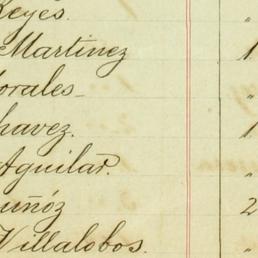 Reyes. "
Martinez 1
orales "
havez. 1
Aguilar. "
uñóz 2
Villalobos. "